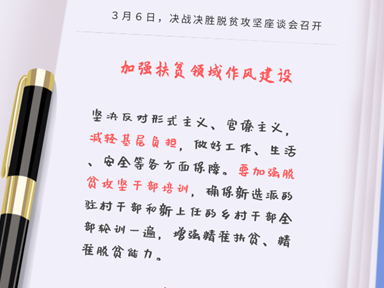 3月6日，决战决胜脱贫攻坚座谈会召开
加强扶贫领域作风建设
坚决反对形式主义、官僚主义，
减轻基层负担，做好工作、生活
、安全等各方面保障。要加强脱
贫攻坚干部培训，确保新选派的
驻村干部和新上任的乡村干部全
部轮训一遍，增强精准扶贫、精
准脱贫能力。